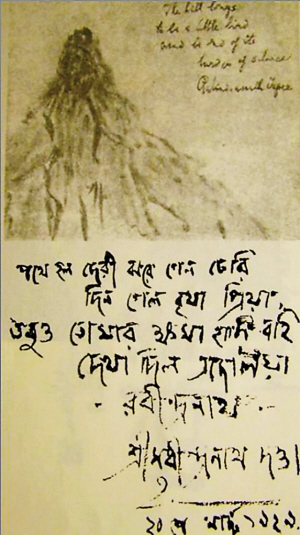 The hill longs
to be a little bird
and be rid of its
burden of silence
Rabindranath Tagore
পথে হল দেরী ঝরে গেল চেরি
দিন গেল বৃথা প্রিয়া,
তবুও তোমার ক্ষমা হাসি বহি
দেখা দিল এজেলিয়া
- রবীন্দ্রনাথ -
শ্রীসুধীন্দ্রনাথ দত্ত
২০ শে মার্চ ১৯২৯.